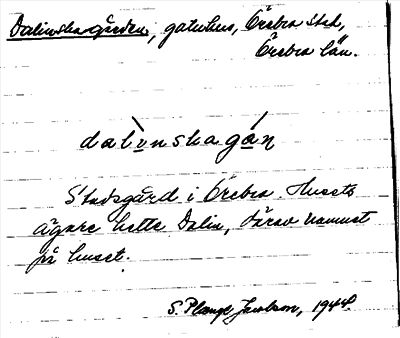 Dalinska gården, gatuhus, Örebro stad,
Örebro län.
dalinskagån
Stadsgård i Örebro. Husets
ägare hette Dalin, därav namnet
på huset.
S. Plange Jacobson, 1944.